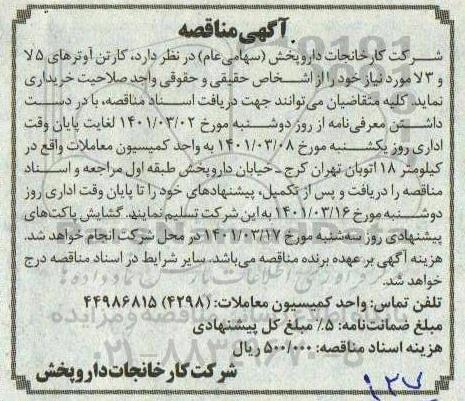 آگهی مناقصه
شرکت کارخانجات داروپخش (سهامی عام) در نظر دارد، کارتن آوترهای ۵ لا
و ۳ لا مورد نیاز خود را از اشخاص حقیقی و حقوقی واجد صلاحیت خریداری
نماید. کلیه متقاضیان می‌توانند جهت دریافت اسناد مناقصه، با در دست
داشتن معرفی‌نامه از روز دوشنبه مورخ ۱۴۰۱/۰۳/۰۲ لغایت پایان وقت
اداری روز یکشنبه مورخ ۱۴۰۱/۰۳/۰۸ به واحد کمیسیون معاملات واقع در
کیلومتر ۱۸ اتوبان تهران کرج ـ خیابان داروپخش طبقه اول مراجعه و اسناد
مناقصه را دریافت و پس از تکمیل، پیشنهادهای خود را تا پایان وقت اداری روز
دوشنبه مورخ ۱۴۰۱/۰۳/۱۶ به این شرکت تسلیم نمایند. گشایش پاکت‌های
پیشنهادی روز سه‌شنبه مورخ ۱۴۰۱/۰۳/۱۷ در محل شرکت انجام خواهد شد.
هزینه آگهی بر عهده برنده مناقصه می‌باشد. سایر شرایط در اسناد مناقصه درج
خواهد شد.
تلفن تماس: واحد کمیسیون معاملات: (۴۲۹۸) ۴۴۹۸۶۸۱۵
مبلغ ضمانت‌نامه: ۵٪ مبلغ کل پیشنهادی
هزینه اسناد مناقصه: ۵۰۰/۰۰۰ ریال
شرکت کارخانجات داروپخش
۱۳۷